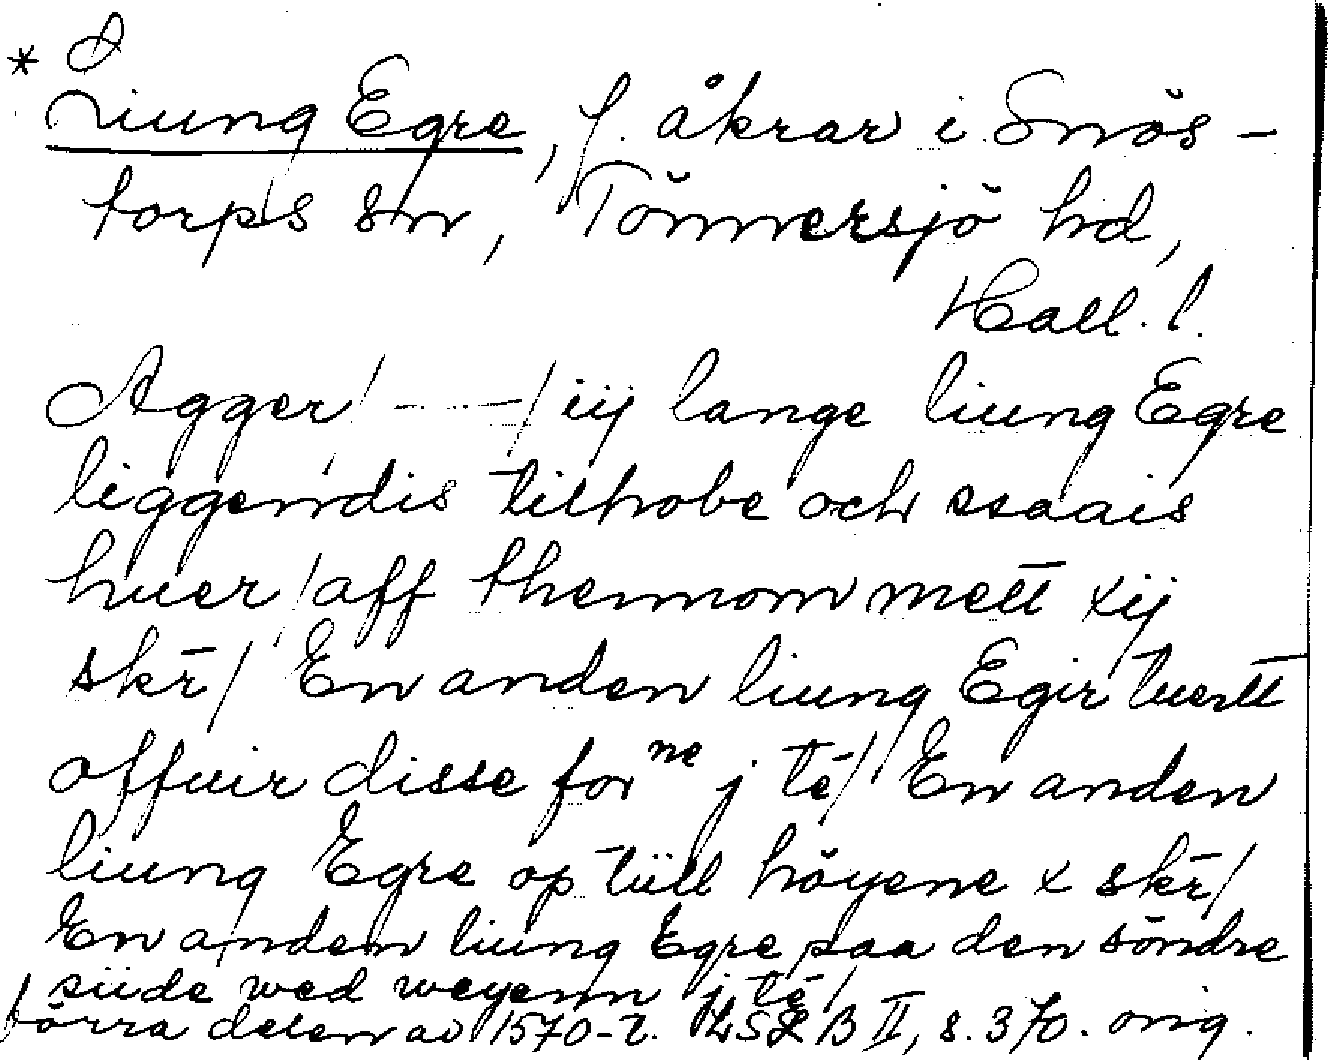 * Liung Egre, f. åkrar i Snös-
torps sn, Tönnersjö hd,
Hall. l.
Agger/ — — / iij lange liung Egre
liggendis tilhobe och ssaais
huer/aff thennom mett xij
skr̄/ En anden liung Egir tuertt
offuir disse forⁿᵉ j tē/ En anden
liung Egre op tiill höyene x skr̄/
En anden liung Egre paa den söndre
siide wed weyenn j tē/
förra delen av 1570-t. LSLB II, s. 370. orig.